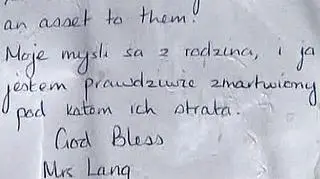 an asset to them.
Moje mysli sa z rodzina, i ja
jestem prawdziwie zmartwiony
pod katom ich strata.
God Bless
Mrs Lang